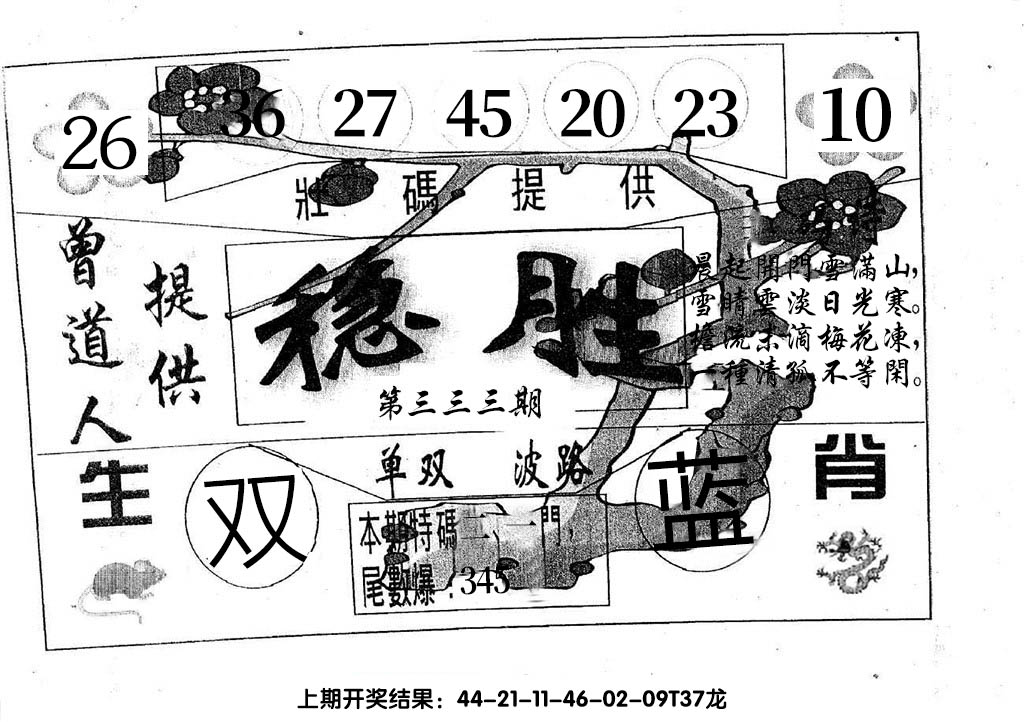 26 36 27 45 20 23 10
壯碼提供
特
曾道人
提供
稳胜
第三三三期
晨起開門雪满山，
雪晴雲淡日光寒。
擔流未滴梅花凍，
一種清孤不等閑。
单双 波路
生
双
蓝
肖
本期特碼二、一門，
尾數爆：345
上期开奖结果：44-21-11-46-02-09T37龙